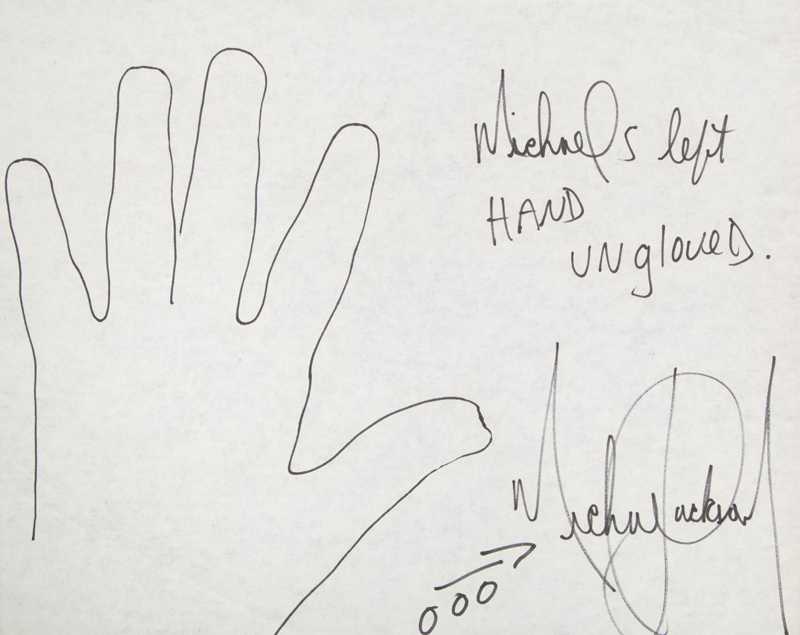 Michael's left
HAND
UNgloveD.
Michael Jackson
000